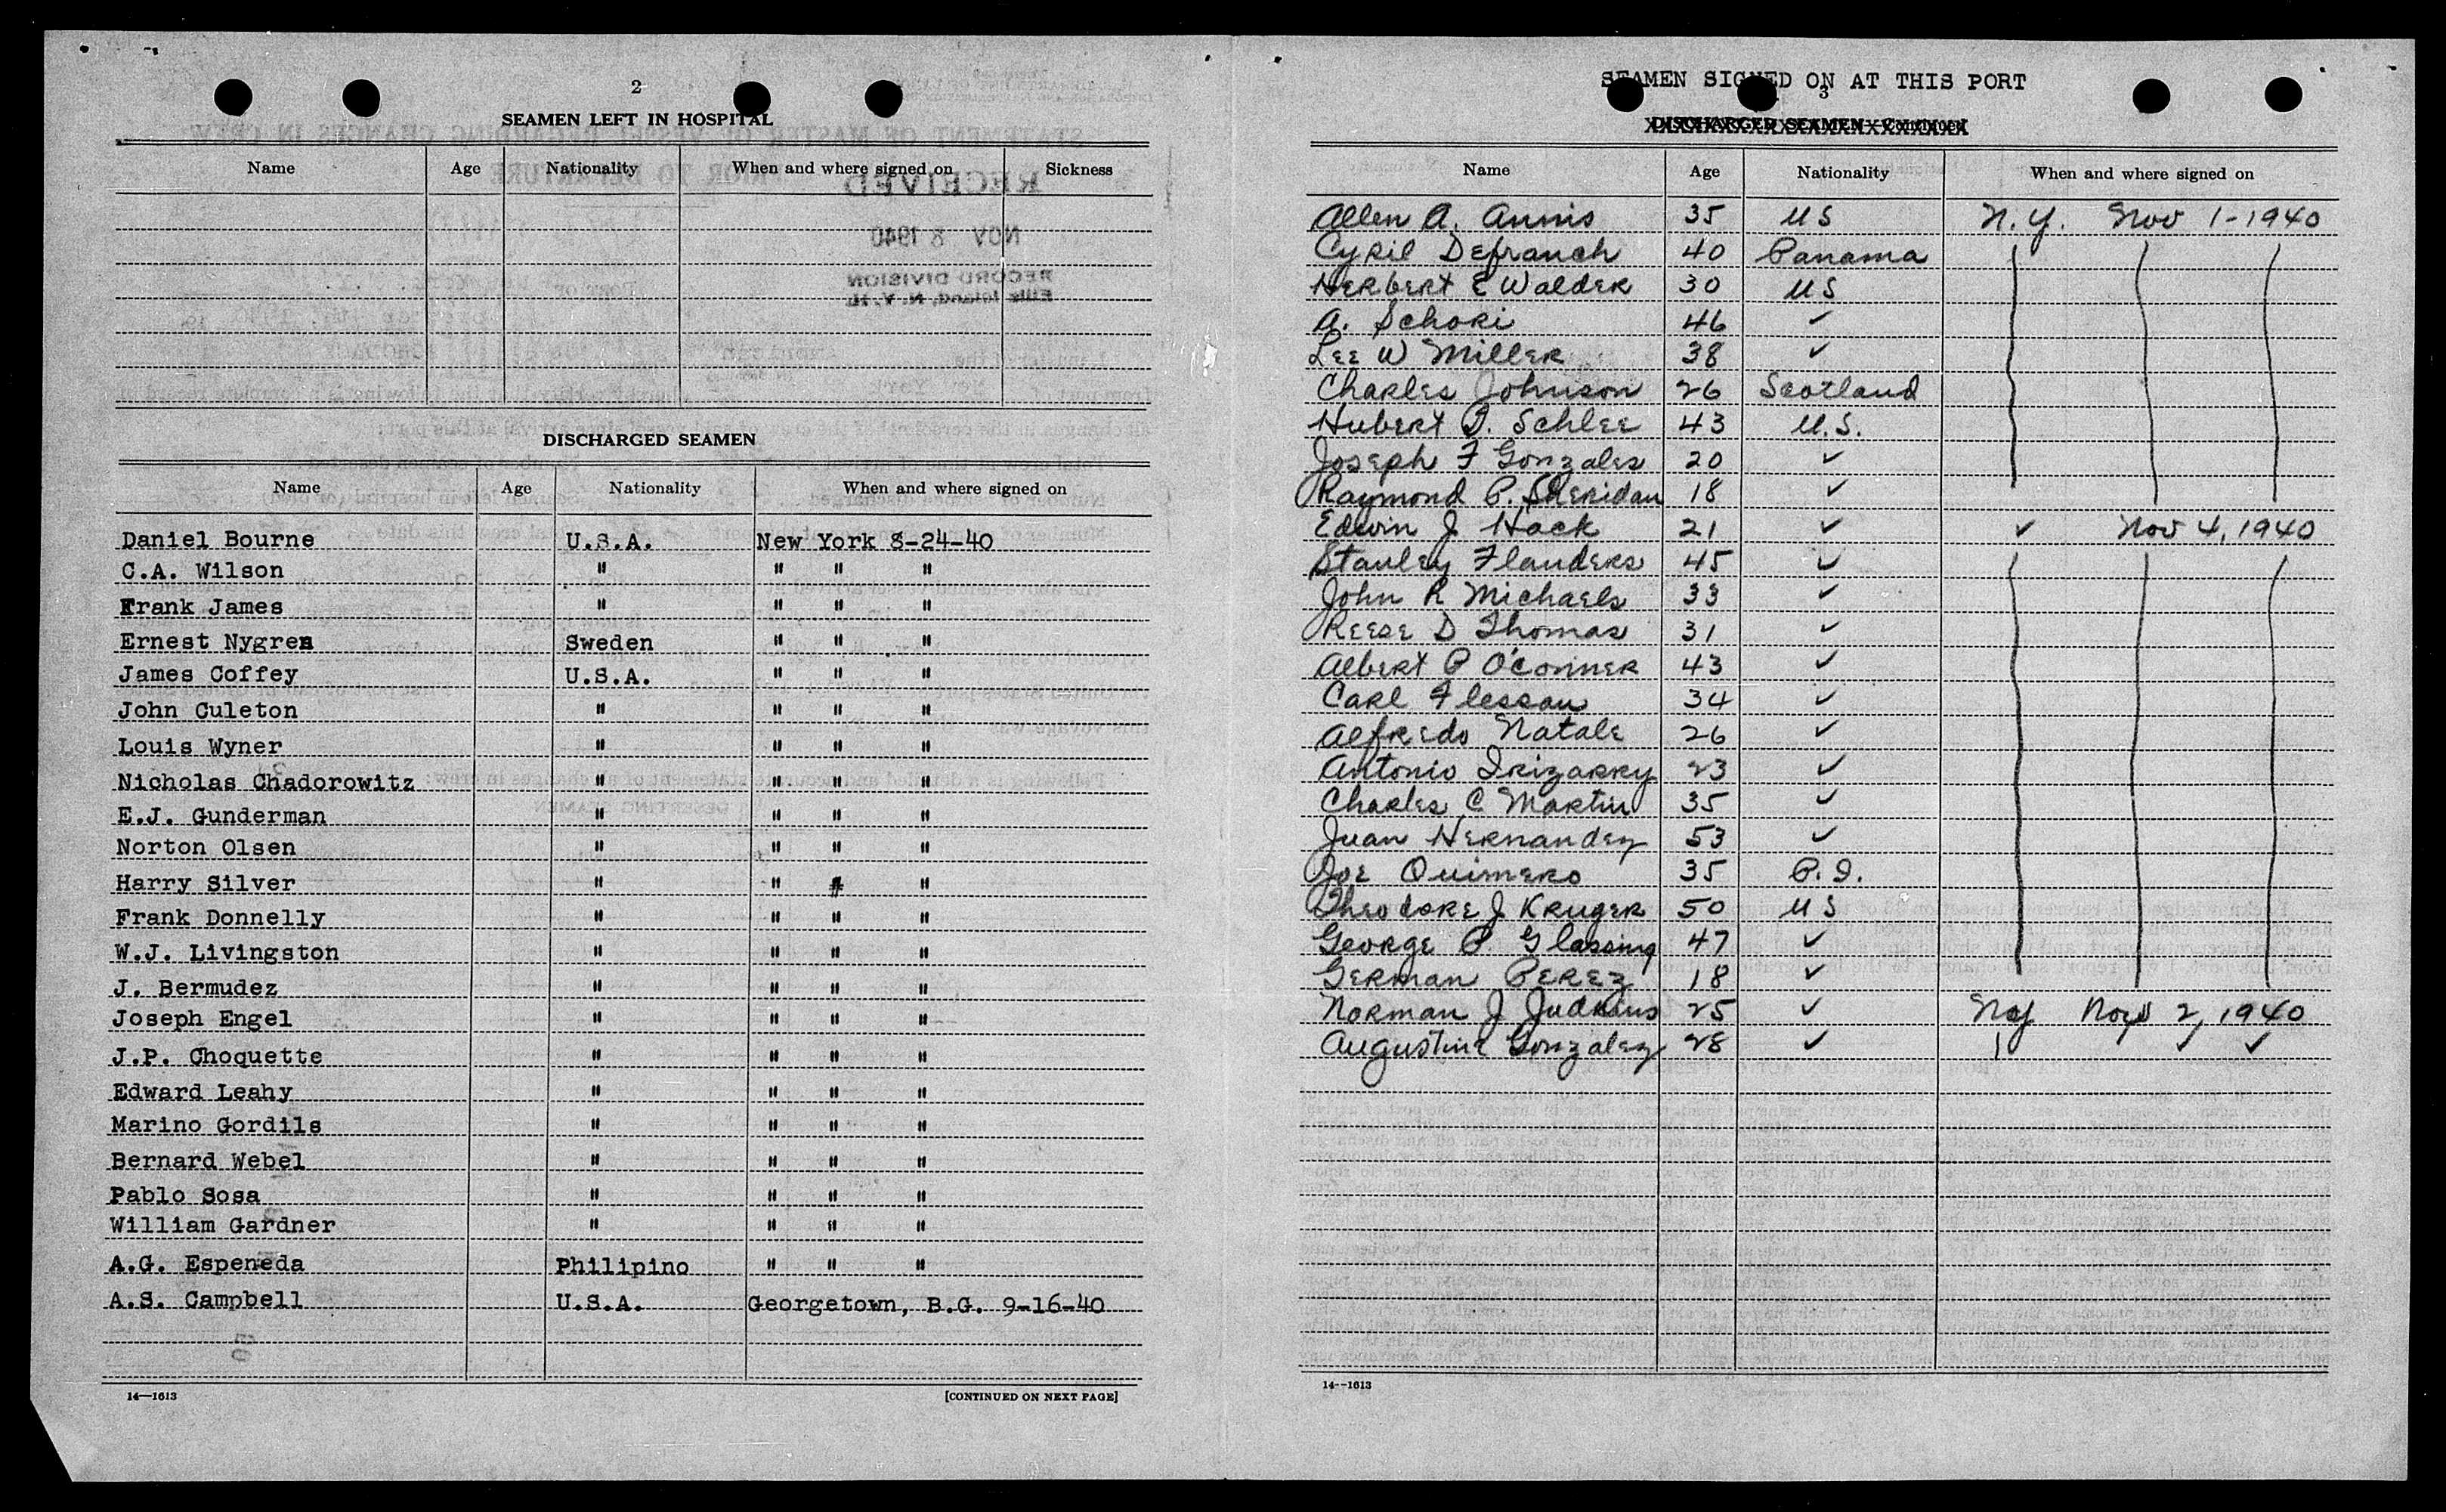 2
SEAMEN LEFT IN HOSPITAL
Name Age Nationality When and where signed on Sickness
DISCHARGED SEAMEN
Name Age Nationality When and where signed on
Daniel Bourne U.S.A. New York 8-24-40
C.A. Wilson " " " "
Frank James " " " "
Ernest Nygren Sweden " " "
James Coffey U.S.A. " " "
John Culeton " " " "
Louis Wyner " " " "
Nicholas Chadorowitz " " " "
E.J. Gunderman " " " "
Norton Olsen " " " "
Harry Silver " " " "
Frank Donnelly " " " "
W.J. Livingston " " " "
J. Bermudez " " " "
Joseph Engel " " " "
J.P. Choquette " " " "
Edward Leahy " " " "
Marino Gordils " " " "
Bernard Webel " " " "
Pablo Sosa " " " "
William Gardner " " " "
A.G. Espeneda Philipino " " "
A.S. Campbell U.S.A. Georgetown, B.G. 9-16-40
14—1613 [CONTINUED ON NEXT PAGE]
SEAMEN SIGNED ON AT THIS PORT
3
DISCHARGED SEAMEN—Continued
Name Age Nationality When and where signed on
Allen A. Annis 35 US N.Y. Nov 1-1940
Cyril Defranch 40 Panama
Herbert E Walder 30 US
A. Schoki 46 ✓
Lee W Miller 38 ✓
Charles Johnson 26 Scotland
Hubert J. Schlee 43 U.S.
Joseph F Gonzales 20 ✓
Raymond P. Sheridan 18 ✓
Edwin J Hack 21 ✓ ✓ Nov 4, 1940
Stanley Flanders 45 ✓
John R Michaels 33 ✓
Reese D Thomas 31 ✓
Albert P O'Conner 43 ✓
Carl Flessau 34 ✓
Alfredo Natale 26 ✓
Antonio Irizarry 23 ✓
Charles C Martin 35 ✓
Juan Hernandez 53 ✓
Joe Quimero 35 P.I.
Theodore J Kruger 50 US
George P Glassing 47 ✓
German Perez 18 ✓
Norman J Judkins 25 ✓ NY Nov 2, 1940
Augustine Gonzalez 28 ✓ ✓ ✓
14—1613